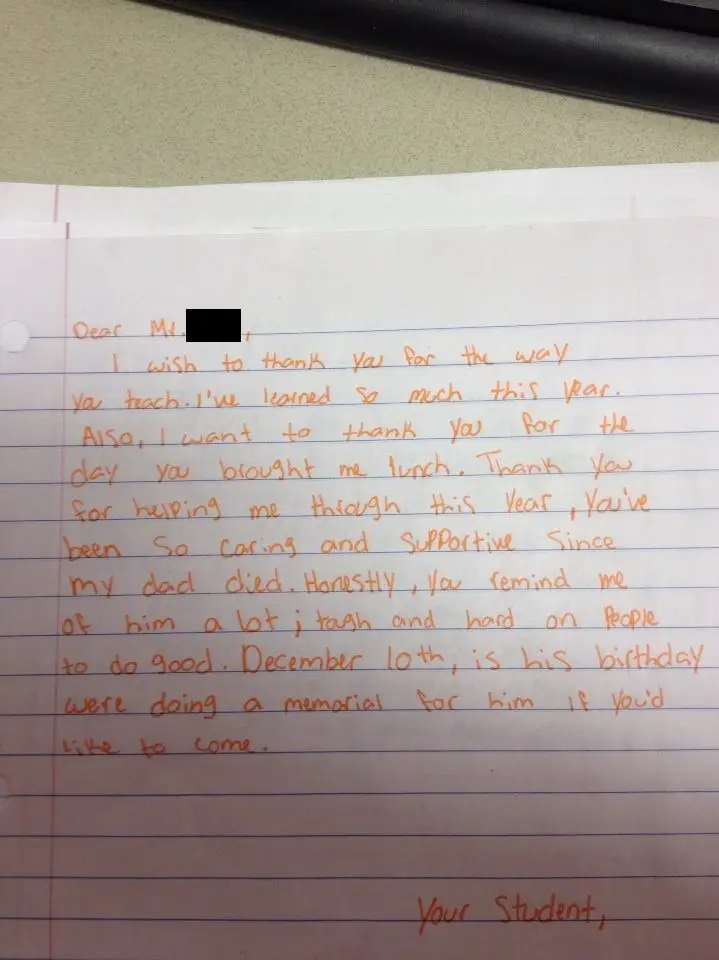 Dear Mr. ,
I wish to thank you for the way
you teach. I've learned so much this year.
Also, I want to thank you for the
day you brought me lunch. Thank you
for helping me through this year, You've
been so caring and supportive since
my dad died. Honestly, you remind me
of him a lot; tough and hard on people
to do good. December 10th, is his birthday
were doing a memorial for him if you'd
like to come.
Your Student,